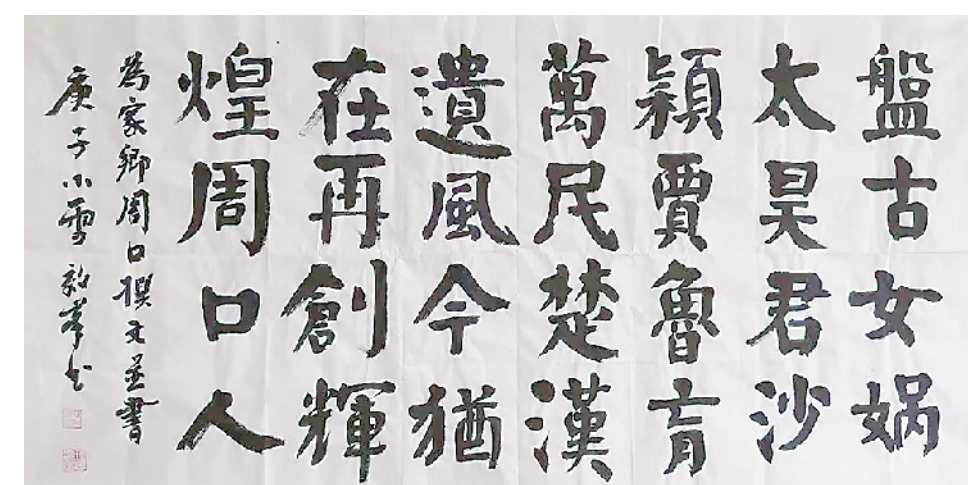 盤古女娲
太昊君沙
潁賈魯育
萬民楚漢
遺風今猶
在再創輝
煌周口人
為家鄉周口撰文並書
庚子小雪